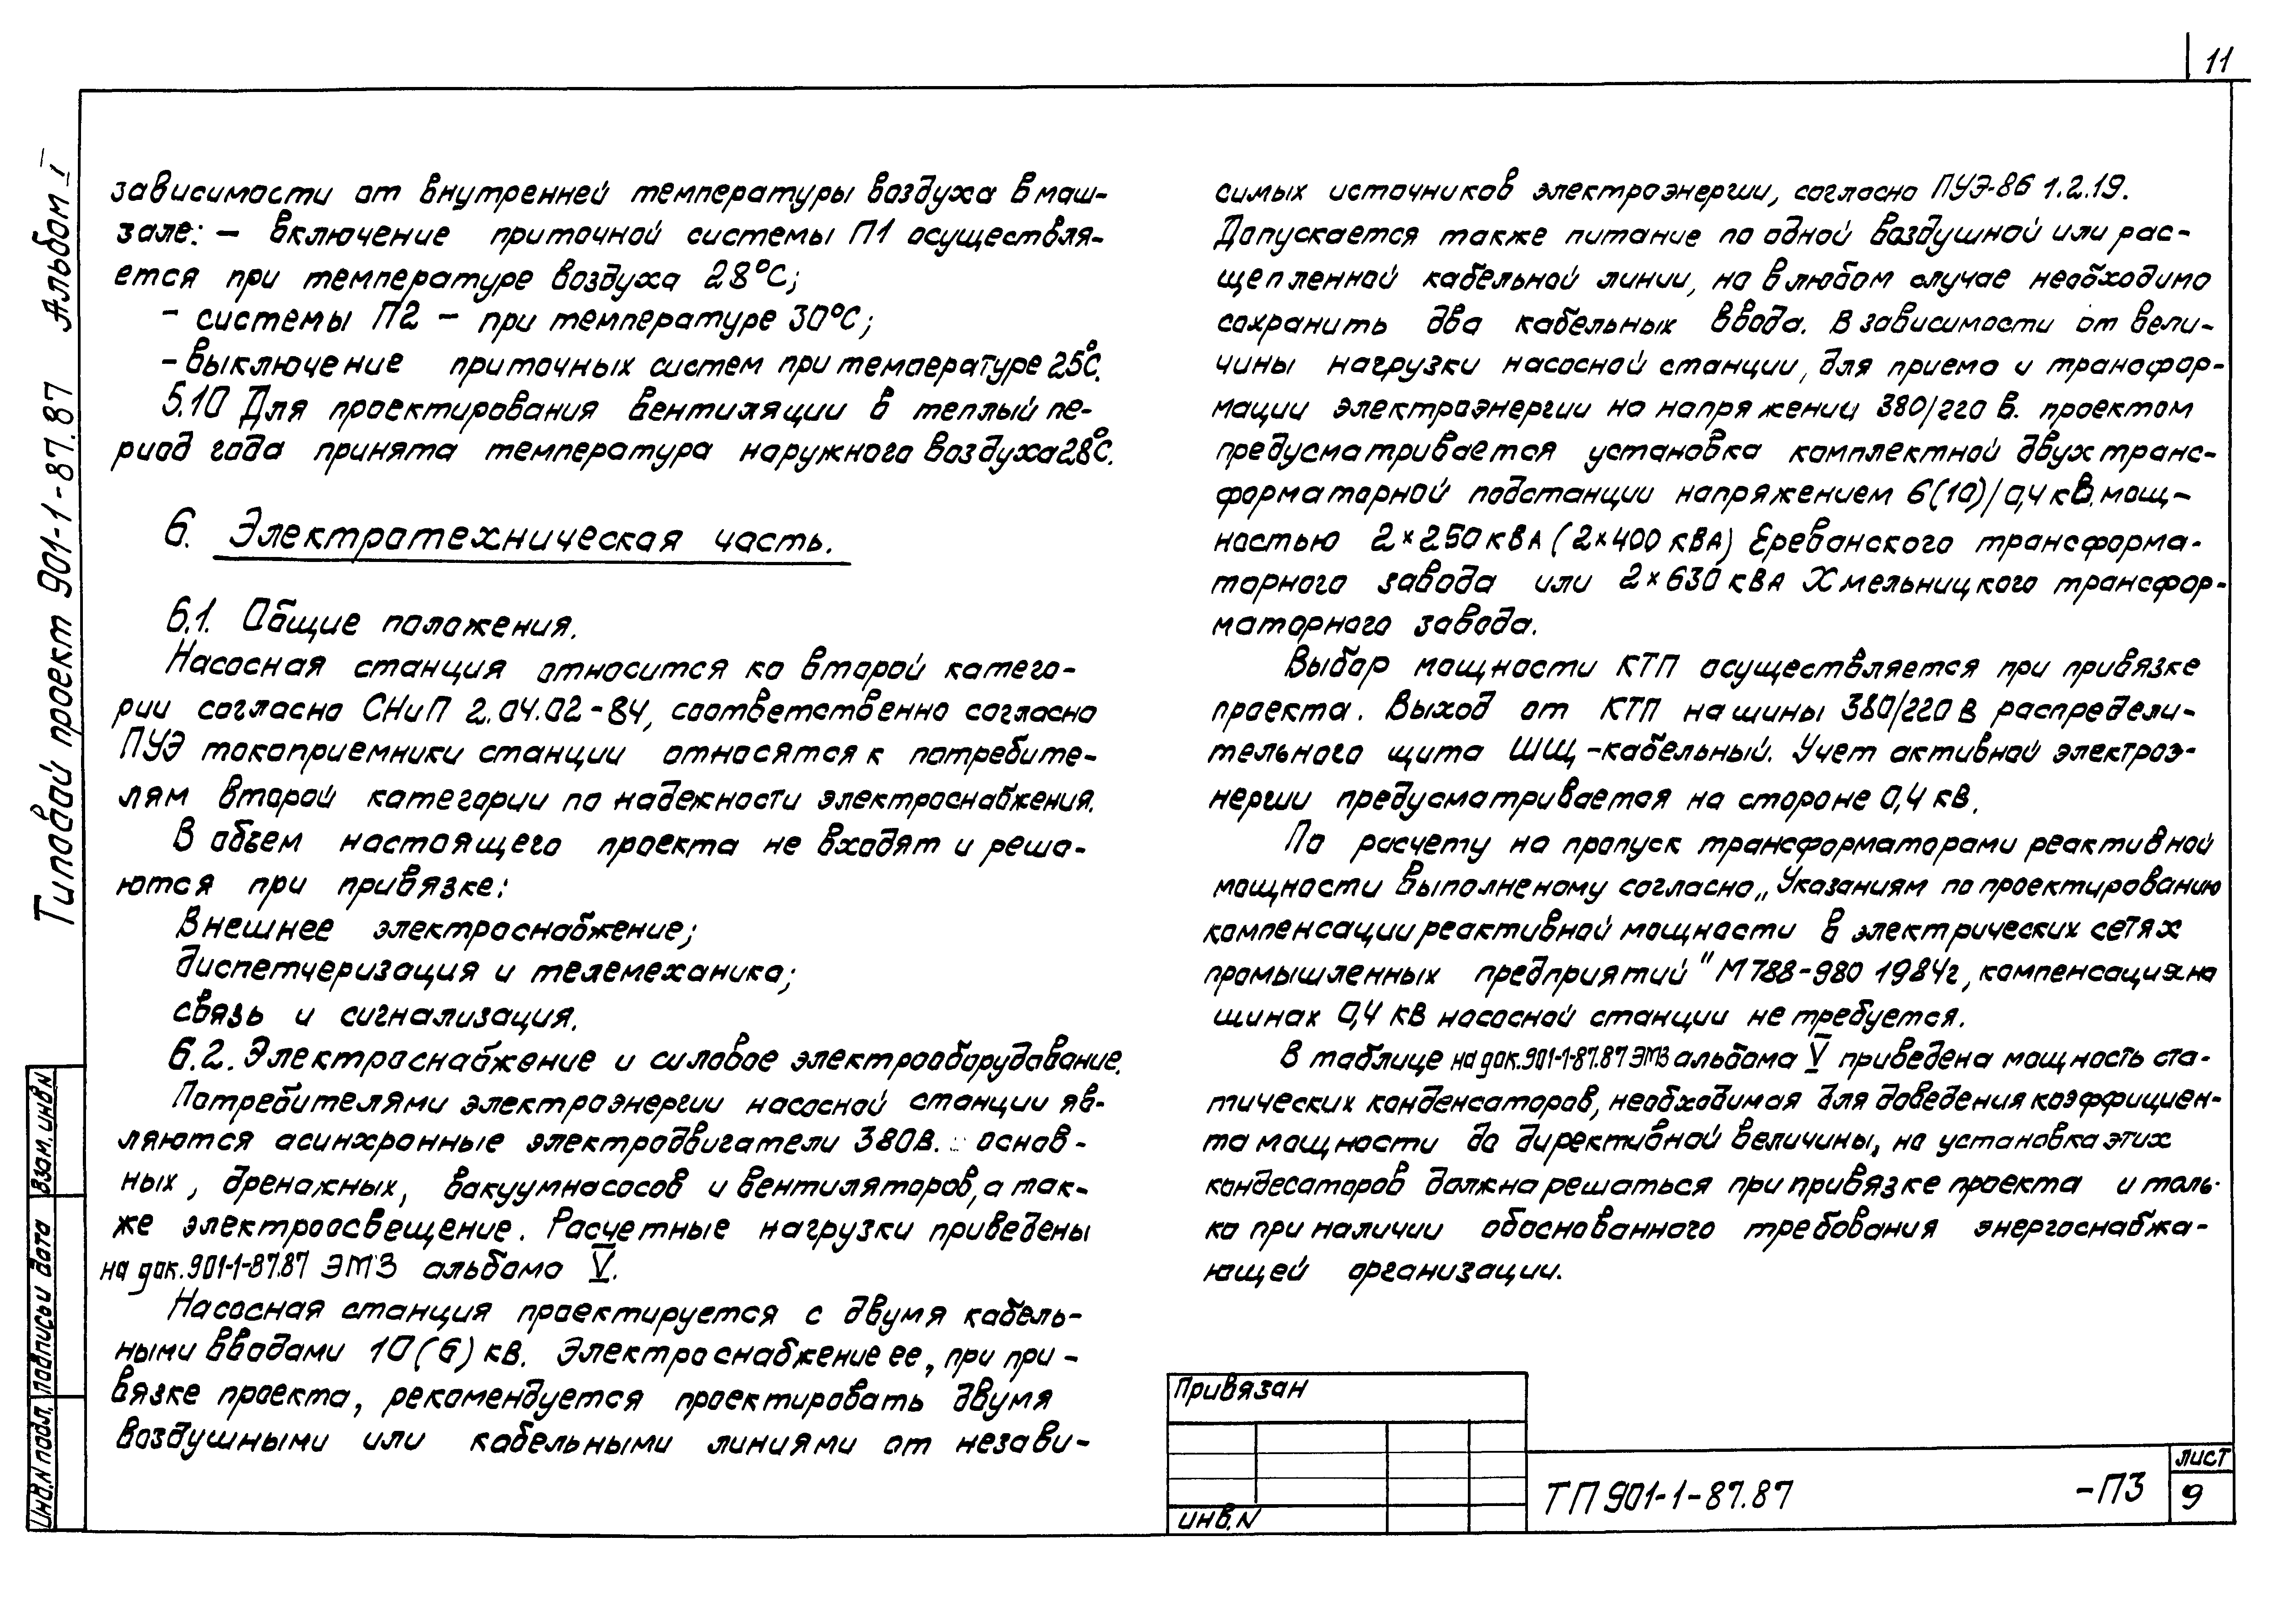 11
Типовой проект 901-1-87.87 Альбом I
зависимости от внутренней температуры воздуха в маш-
зале: – включение приточной системы П1 осуществля-
ется при температуре воздуха 28°С;
– системы П2 – при температуре 30°С;
– выключение приточных систем при температуре 25°С.
5.10 Для проектирования вентиляции в теплый пе-
риод года принята температура наружного воздуха 28°С.
6. Электротехническая часть.
6.1. Общие положения.
Насосная станция относится ко второй катего-
рии согласно СНиП 2.04.02-84, соответственно согласно
ПУЭ токоприемники станции относятся к потребите-
лям второй категории по надежности электроснабжения.
В объем настоящего проекта не входят и реша-
ются при привязке:
Внешнее электроснабжение;
диспетчеризация и телемеханика;
связь и сигнализация.
6.2. Электроснабжение и силовое электрооборудование.
Потребителями электроэнергии насосной станции яв-
ляются асинхронные электродвигатели 380В. основ-
ных, дренажных, вакуумнасосов и вентиляторов, а так-
же электроосвещение. Расчетные нагрузки приведены
на док. 901-1-87.87 ЭМ3 альбома V.
Насосная станция проектируется с двумя кабель-
ными вводами 10(6) кв. Электроснабжение ее, при при-
вязке проекта, рекомендуется проектировать двумя
воздушными или кабельными линиями от незави-
симых источников электроэнергии, согласно ПУЭ-86 1.2.19.
Допускается также питание по одной воздушной или рас-
щепленной кабельной линии, но в любом случае необходимо
сохранить два кабельных ввода. В зависимости от вели-
чины нагрузки насосной станции, для приема и трансфор-
мации электроэнергии на напряжении 380/220 В. проектом
предусматривается установка комплектной двухтранс-
форматорной подстанции напряжением 6(10)/0,4 кв. мощ-
ностью 2×250 кВА (2×400 кВА) Ереванского трансформа-
торного завода или 2×630 кВА Хмельницкого трансфор-
маторного завода.
Выбор мощности КТП осуществляется при привязке
проекта. Выход от КТП на шины 380/220 В распредели-
тельного щита ШЩ – кабельный. Учет активной электроэ-
нергии предусматривается на стороне 0,4 кв.
По расчету на пропуск трансформаторами реактивной
мощности выполненому согласно „Указаниям по проектированию
компенсации реактивной мощности в электрических сетях
промышленных предприятий" М788-980 1984г, компенсация на
шинах 0,4 кв насосной станции не требуется.
В таблице на док. 901-1-87.87 ЭМ3 альбома V приведена мощность ста-
тических конденсаторов, необходимая для доведения коэффициен-
та мощности до директивной величины, но установка этих
кондесаторов должна решаться при привязке проекта и толь-
ко при наличии обоснованного требования энергоснабжа-
ющей организации.
Взам. инв N
Подпись и дата
Инв. N подл.
Привязан
инв. N
ТП 901-1-87.87 -ПЗ
лист
9